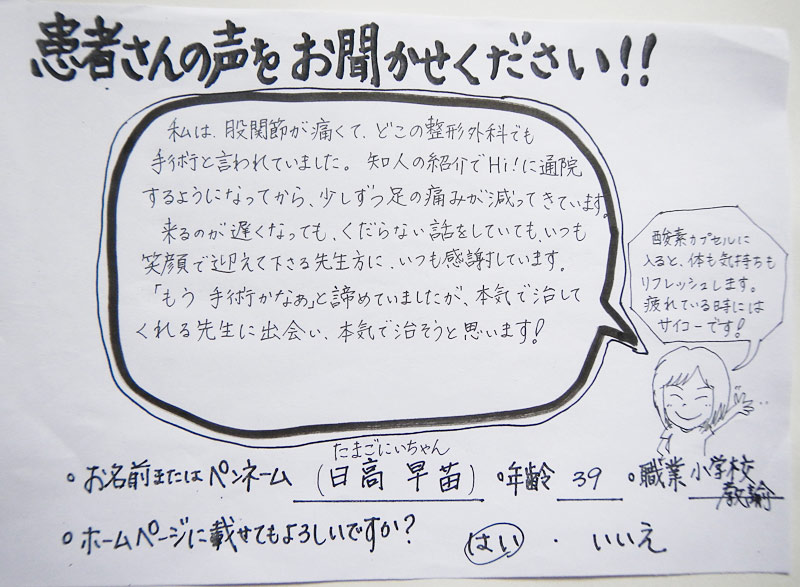 患者さんの声をお聞かせください!!
私は、股関節が痛くて、どこの整形外科でも
手術と言われていました。知人の紹介でHi!に通院
するようになってから、少しずつ足の痛みが減ってきています。
来るのが遅くなっても、くだらない話をしていても、いつも
笑顔で迎えて下さる先生方に、いつも感謝しています。
「もう手術かなぁ」と諦めていましたが、本気で治して
くれる先生に出会い、本気で治そうと思います!
酸素カプセルに
入ると、体も気持ちも
リフレッシュします。
疲れている時には
サイコーです!
たまごにいちゃん
○お名前またはペンネーム (日高 早苗) ○年齢 39 ○職業 小学校
教諭
○ホームページに載せてもよろしいですか? はい ・ いいえ